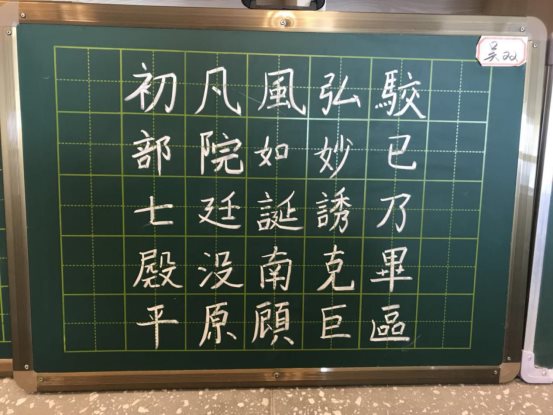 吴双
初凡風弘駮
部院如妙已
七廷誕誘乃
殿没南克畢
平原顧巨區